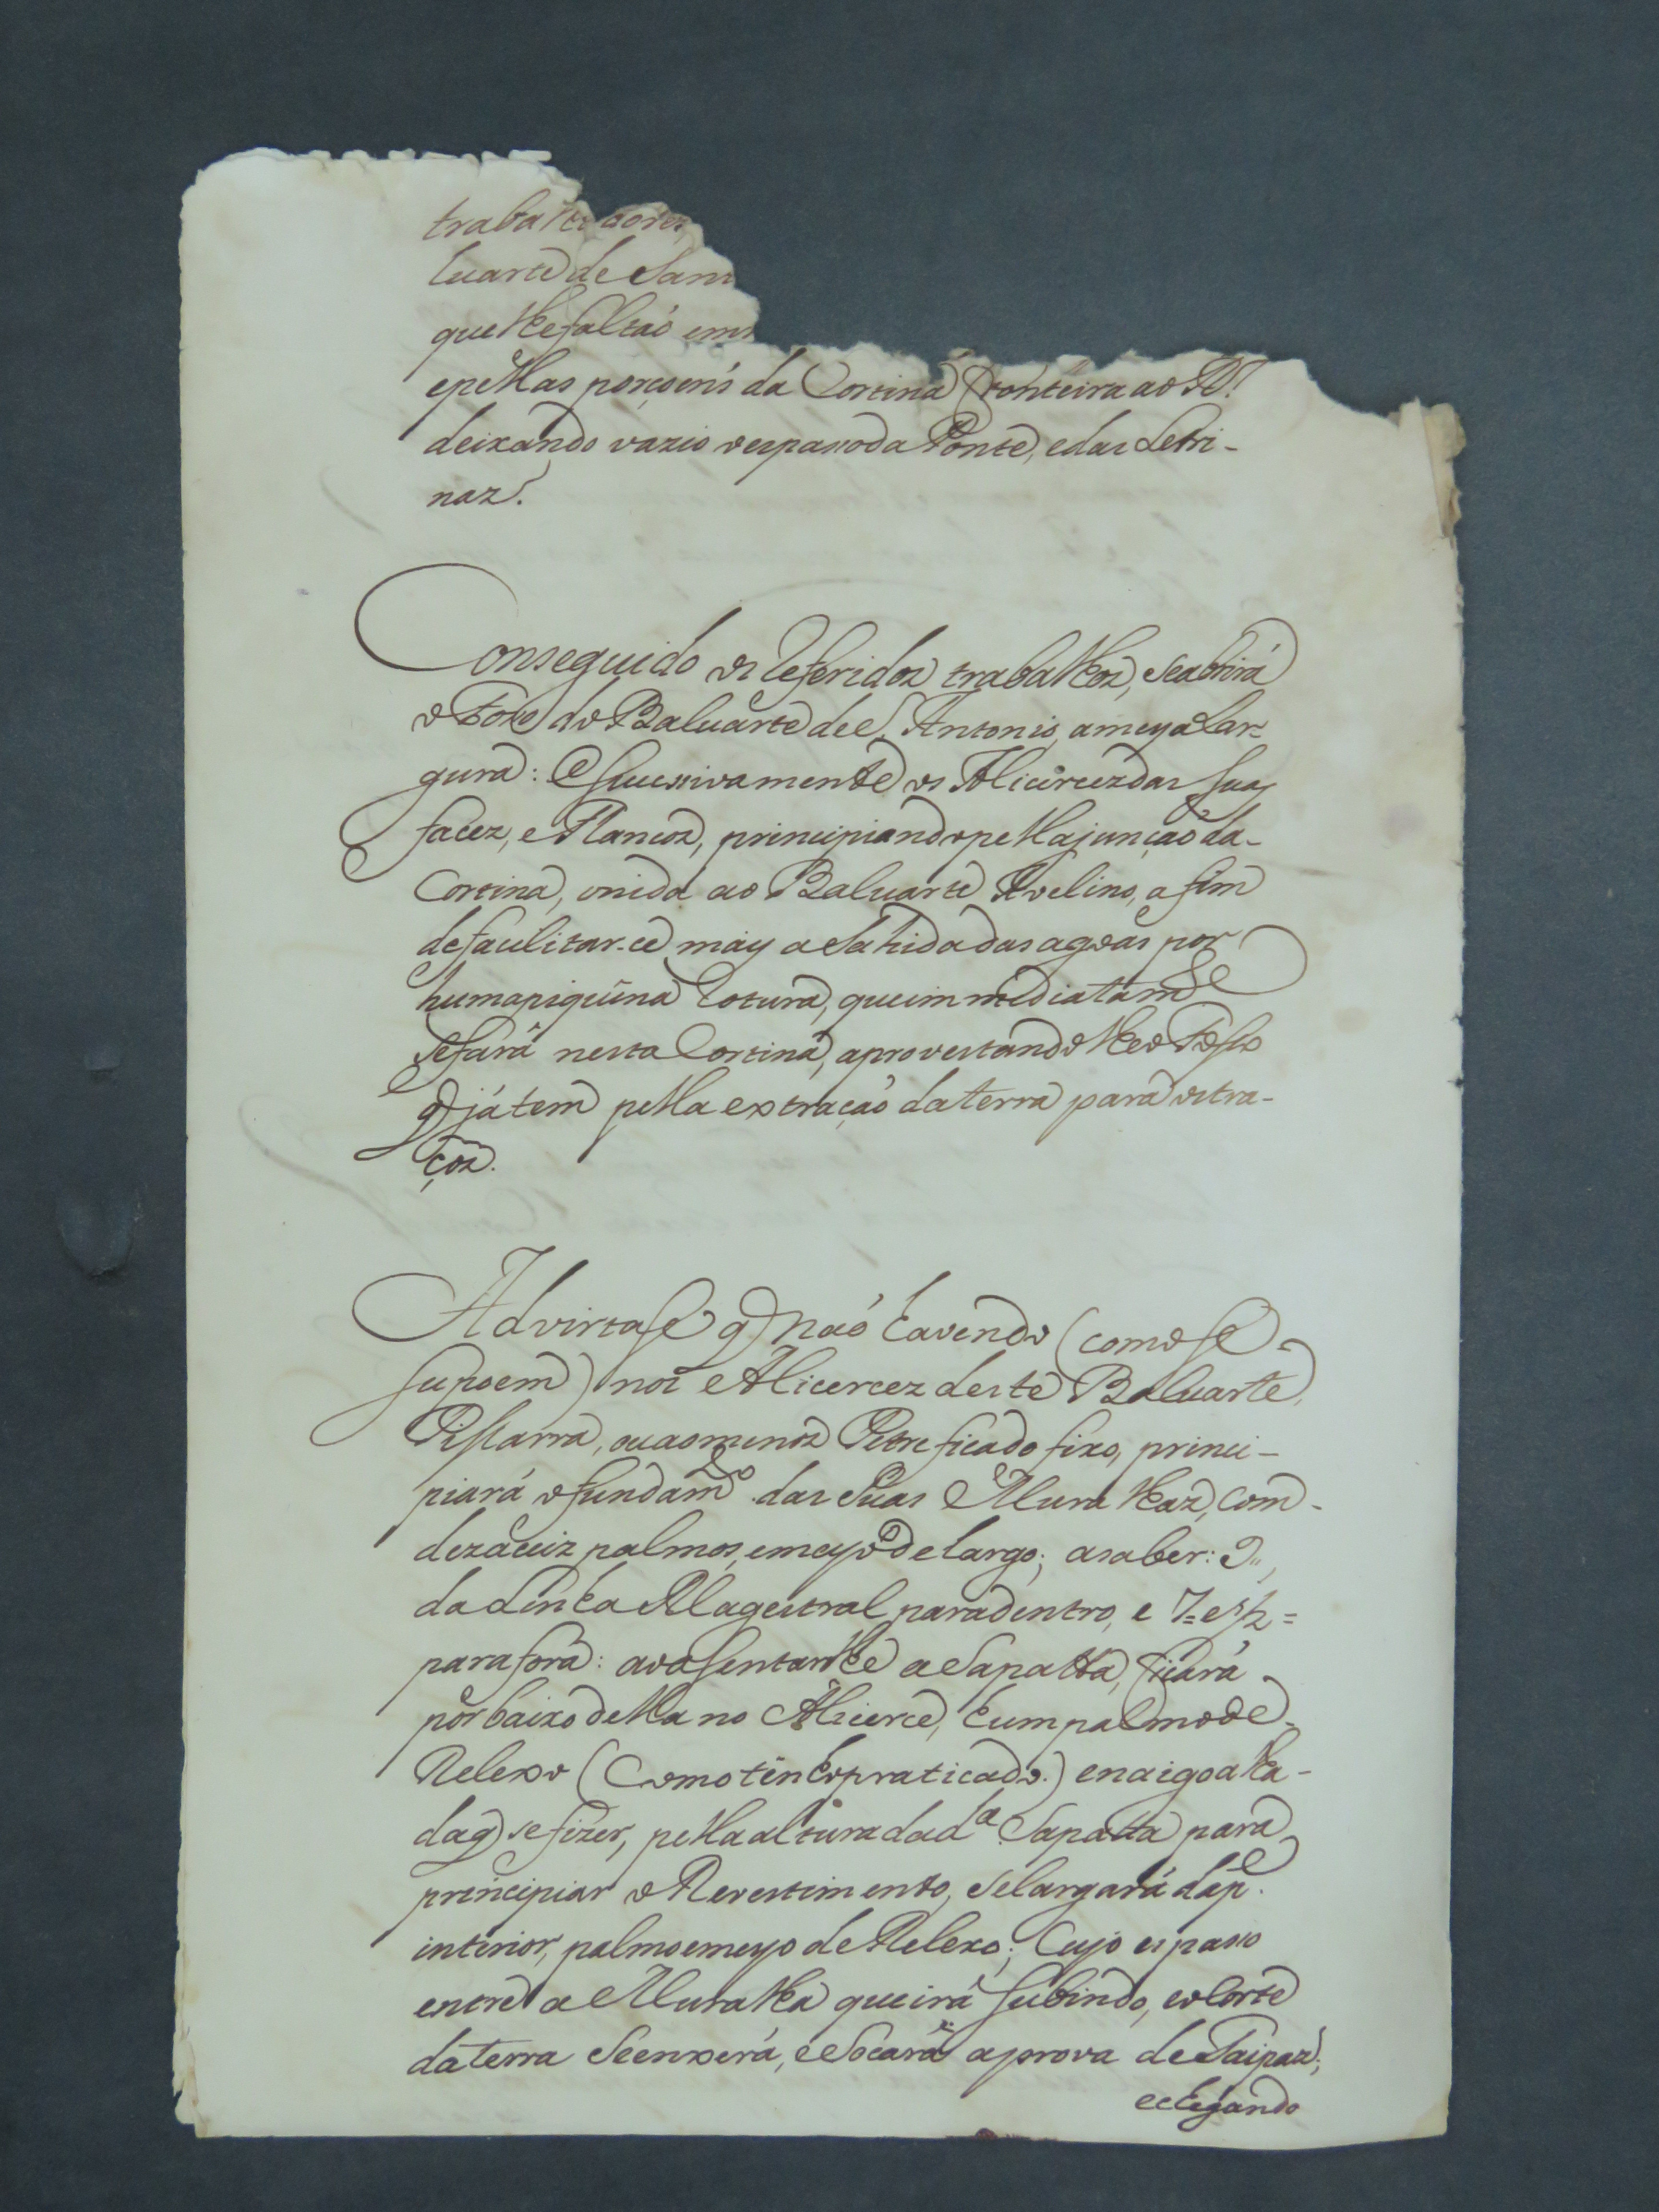 trabalhadores
luarte de San
que lhe faltaó em
epellas porçoens da Cortina fronteira ao R.
deixando vazio o espasso da Ponte, e das Letri-
naz.
Conseguido os Referidoz trabalhoz, se abrirá
o Fosso do Baluarte de S. Antonio, a meya Lar-
gura: E Sucessivamente os Alicercez das Suas
facez, e Flancoz, principiando pella junçaó da
Cortina, unida ao Baluarte Avelino, a fim
de facilitar-ce mays a Sahida das agoas por
huma piquena Rotura, que immediatamte
Se fará nesta Cortina, aproveitandolhe o Fosso
q já tem pella extraçaó da terra para os tra-
çoz.
Advirtase q naó havendo (como se
supoem) nos Alicercez deste Baluarte,
Pissarra, ou ao menoz Petreficado fixo, princi-
piará o fundamto das Suas Muralhaz, Com
dezaceiz palmos, e meyo de largo; a saber: 9,,
da Linha Magestral para dentro, e 7=e 1/2=
para fora: ao assentarlhe a Sapatta, ficará
por baixo della no Alicerce, hum palmo de
Relexo (Como tenho praticado.) e na igoalha-
da q se fizer, pella altura da da Sapatta para
principiar o Revestimento, Se largará da pe
interior, palmo e meyo de Relexo; Cujo espasso
entre a Muralha que irá Subindo, e o Corte
da terra Se enxerá, e Socará a prova de Taipaz;
e chegando